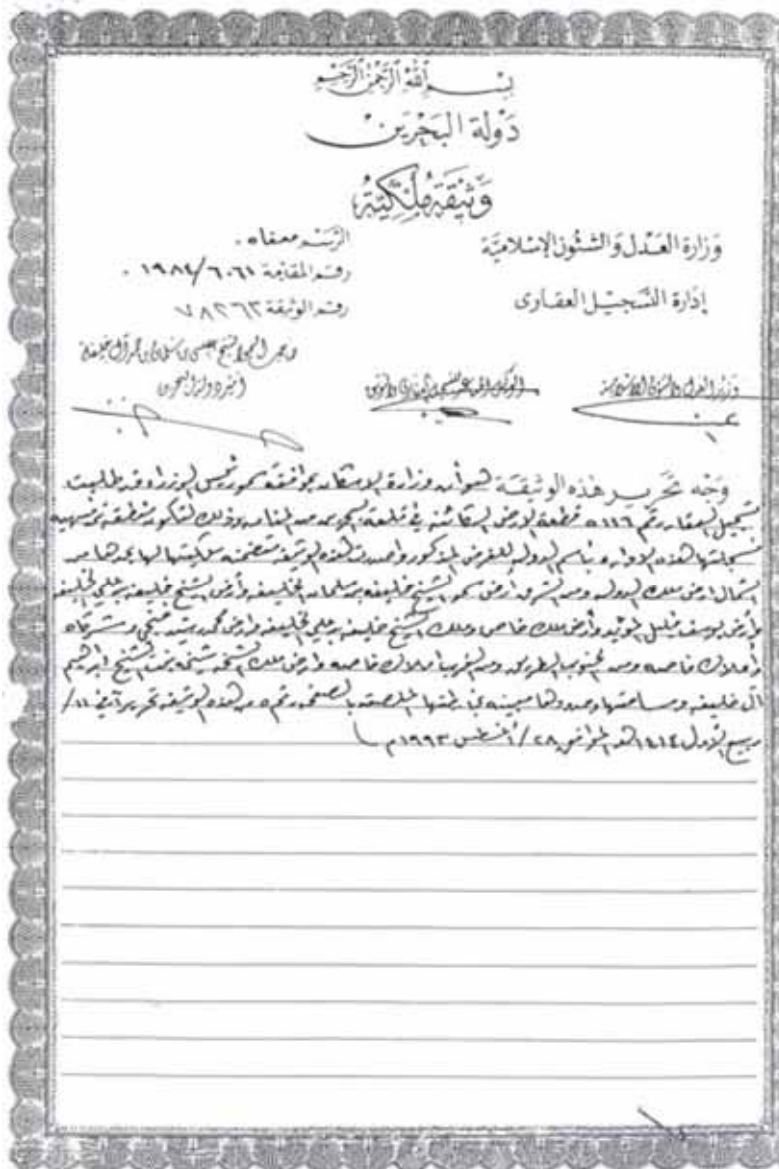 بسم الله الرحمن الرحيم
دولة البحرين
وثيقة ملكية
وزارة العدل والشئون الإسلامية
إدارة التسجيل العقاري
الرسم معفاه.
رقم المقدمة ٦٠٦١/١٩٨٤.
رقم الوثيقة ٧٨٢٦٣
الشيخ عيسى بن سلمان بن حمد آل خليفة
أمير دولة البحرين
وزير العدل والشئون الإسلامية
وجه تحرير هذه الوثيقة هو أن وزارة الاسكان بموافقة سمو رئيس الوزراء قد طلبت
تسجيل العقار رقم ٥١١٦ قطعة الارض الكائنة في من المنامة وذلك لتكون منطقة
باسم الدولة للغرض المذكور هذه الوثيقة متضمنة ملكيتها لها يحدها من
الشمال ارض ملك الدولة ومن الشرق ارض سمو الشيخ خليفه بن سلمان الخليفه وأرض الشيخ خليفه بن علي الخليفه
وأرض يوسف خليل المؤيد وأرض ملك خاص وملك الشيخ خليفه بن علي الخليفه وارض محمد
وأملاك خاصه ومن الجنوب الطريق ومن الغرب املاك خاصه وارض ملك الشيخه بنت الشيخ ابراهيم
آل خليفه ومساحتها وحدودها مبينه في الملصقه بالصفحه رقم ٥ من هذه الوثيقه تحريرا في ١١/
ربيع الأول ١٤١٤هـ الموافق ٢٨/ أغسطس ١٩٩٣م